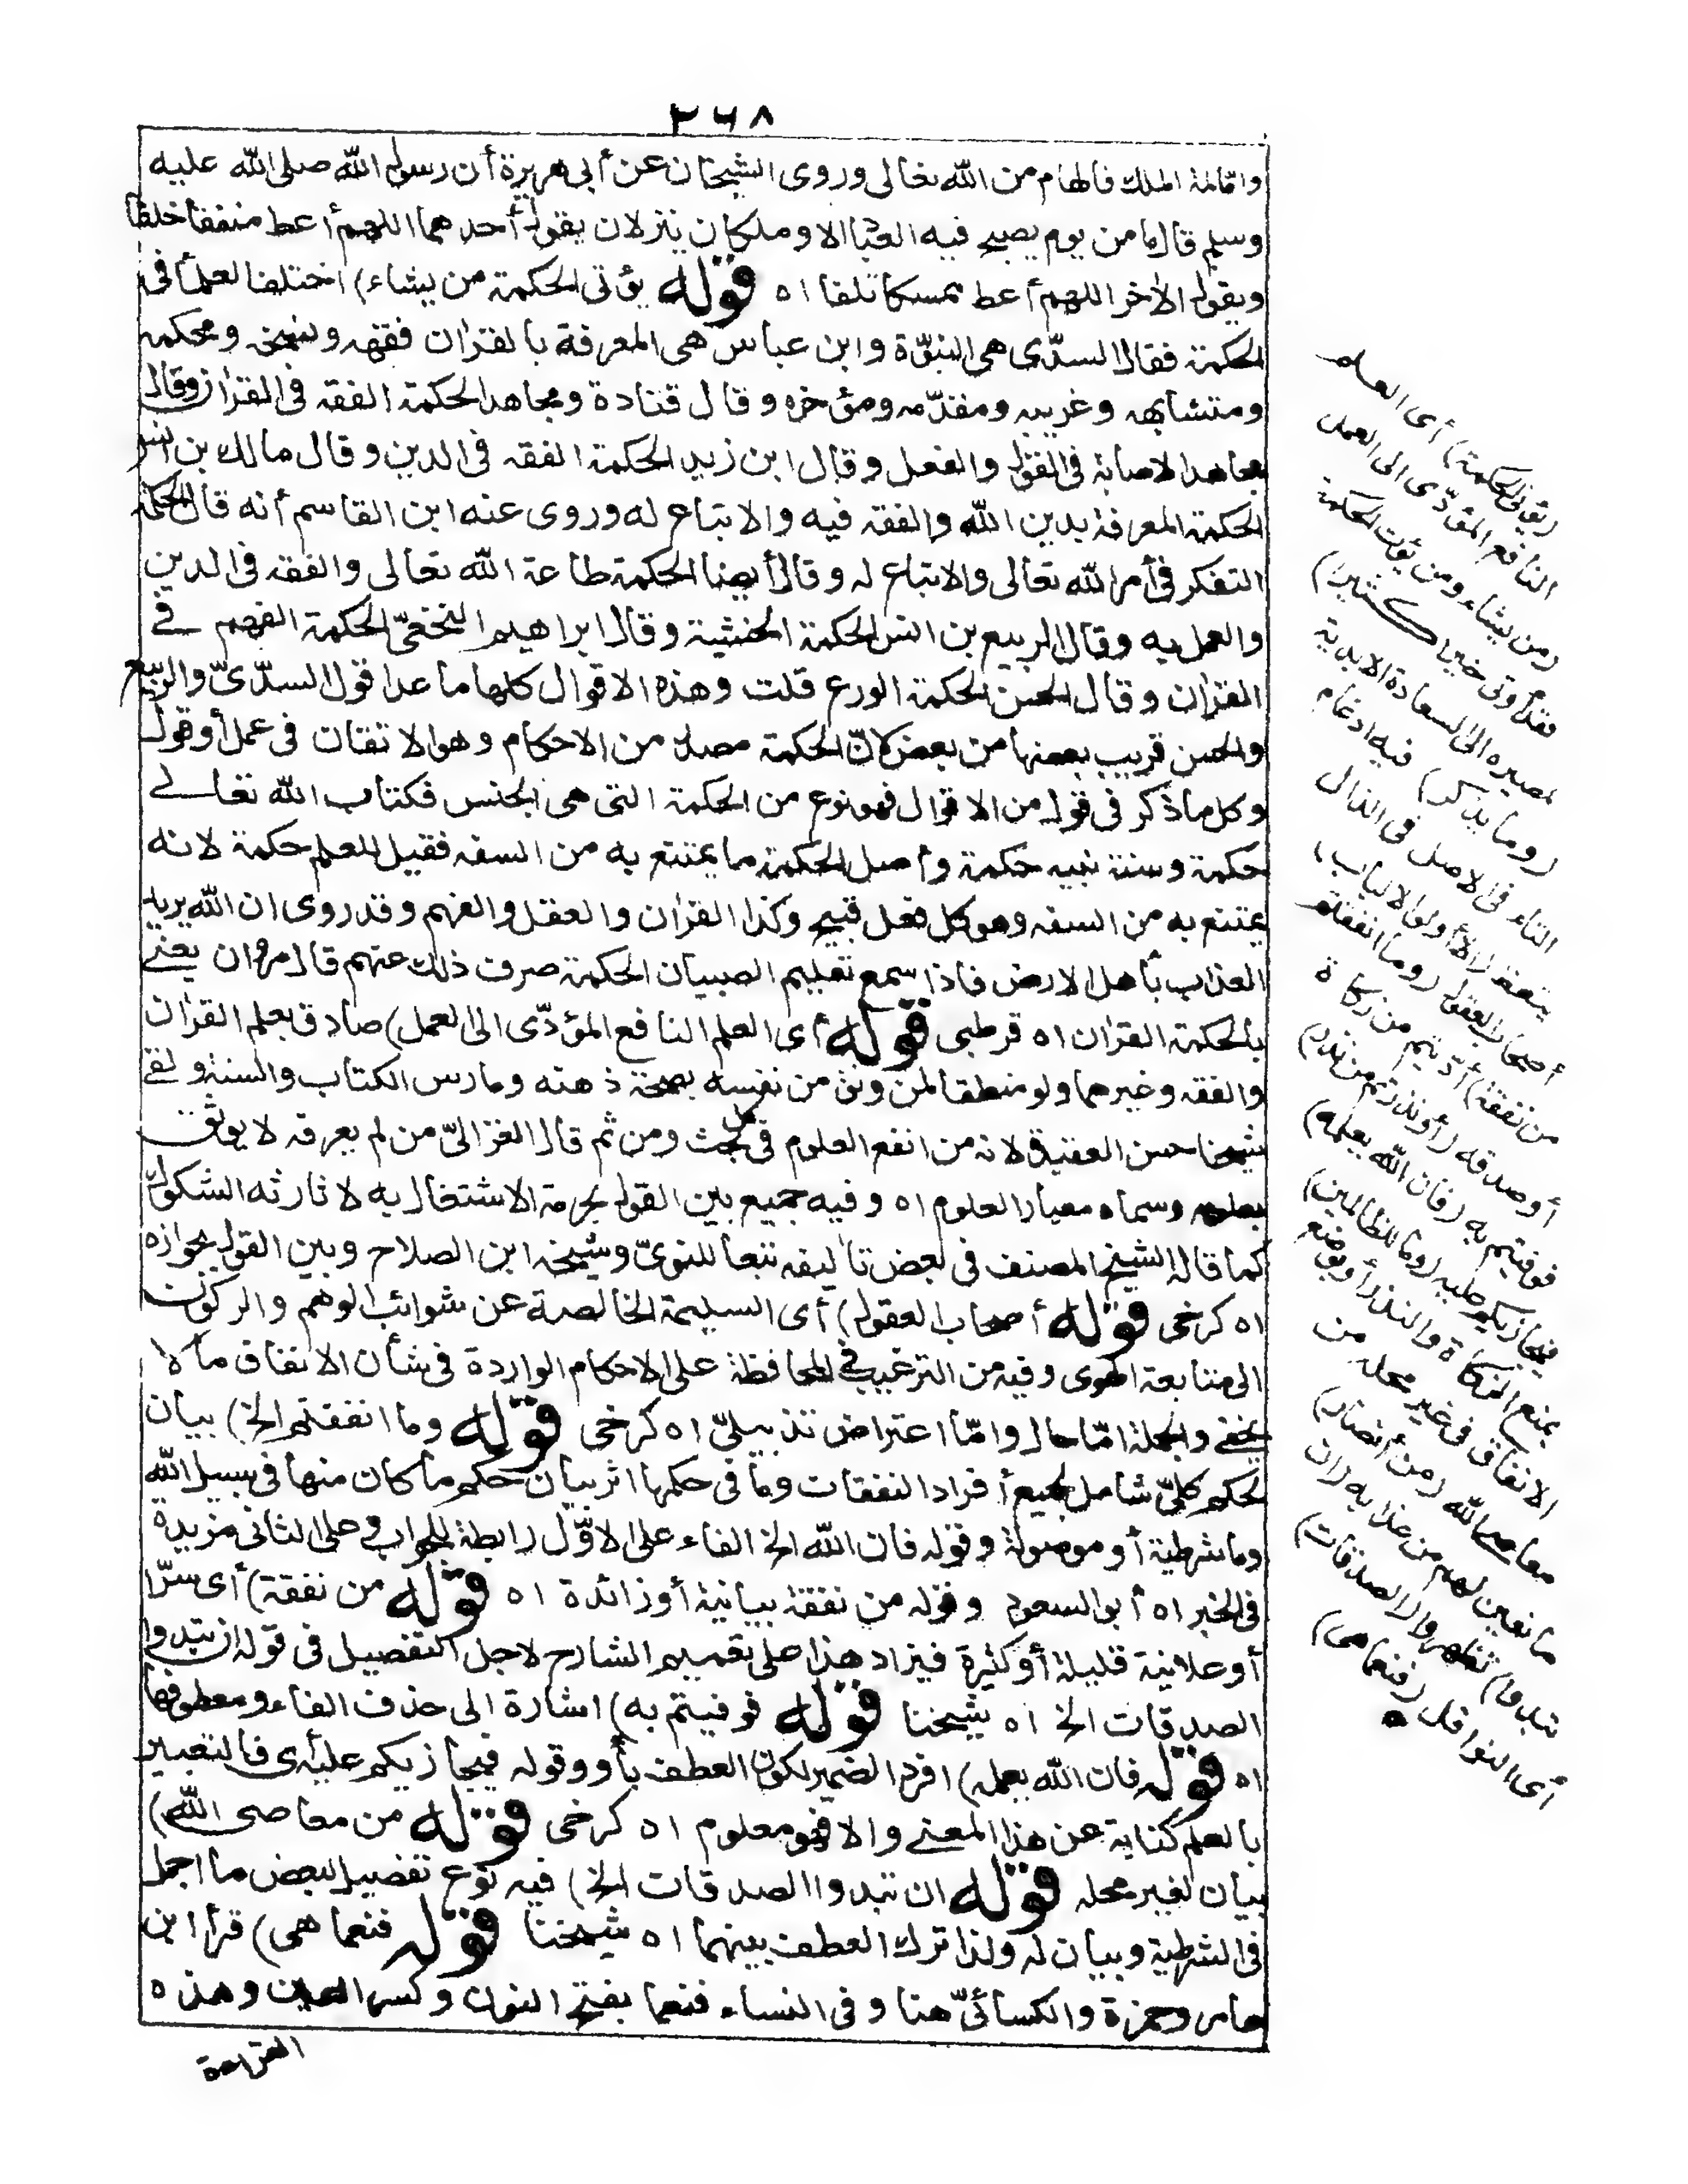 ٢٦٨
وامالمة الملك فالهام من الله تعالى وروى الشيخان عن أبى هريرة أن رسول الله صلى الله عليه
وسلم قال ما من يوم يصبح فيه العباد الا وملكان ينزلان يقول أحدهما اللهم أعط منفقا خلفا
ويقول الآخر اللهم أعط ممسكا تلفا اه قوله يؤتى الحكمة من يشاء) اختلف العلمأ فى
الحكمة فقال السدّى هى النبوّة وابن عباس هى المعرفة بالقرآن فقهه ونسخه ومحكمه
ومتشابهه وغريبه ومقدّمه ومؤخره وقال قتادة ومجاهد الحكمة الفقه فى القرآن وقال
مجاهد الاصابة فى القول والفعل وقال ابن زيد الحكمة الفقه فى الدين وقال مالك بن انس
الحكمة المعرفة بدين الله والفقه فيه والاتباع له وروى عنه ابن القاسم أنه قال الحكمة
التفكر فى أمر الله تعالى والاتباع له وقال أيضا الحكمة طاعة الله تعالى والفقه فى الدين
والعمل به وقال الربيع بن انس الحكمة الخشية وقال ابراهيم النخعىّ الحكمة الفهم فى
القرآن وقال الحسن الحكمة الورع قلت وهذه الاقوال كلها ما عدا قول السدّىّ والربيع
والحسن قريب بعضها من بعض لانّ الحكمة مصدر من الاحكام وهو الاتقان فى عمل أو قول
وكل ما ذكر فى قوله من الاقوال فهو نوع من الحكمة التى هى الجنس فكتاب الله تعالى
حكمة وسنة نبيه حكمة وأصل الحكمة ما يمتنع به من السفه فقيل للعلم حكمة لانه
يمتنع به من السفه وهو كل فعل قبيح وكذا القرآن والعقل والفهم وقد روى ان الله يريد
العذاب بأهل الارض فاذا سمع تعليم الصبيان الحكمة صرف ذلك عنهم قال مروان يعنى
بالحكمة القرآن اه قرطبى قوله أى العلم النافع المؤدّى الى العمل) صادق بعلم القرآن
والفقه وغيرهما ولو منطقا لمن وثق من نفسه بصحة ذهنه ومارس الكتاب والسنة ولقى
شيخنا حسن العقيدة لانه من انفع العلوم فى كل بحث ومن ثم قال الغزالىّ من لم يعرفه لا يوثق
بعلمه وسماه معيار العلوم اه وفيه جميع بين القول بحرمة الاشتغال به لاثارته الشكوك
كما قاله الشيخ المصنف فى بعض تآليفه تبعا للنوىّ وشيخه ابن الصلاح وبين القول بجوازه
اه كرخى قوله أصحاب العقول) أى السليمة الخالصة عن شوائب الوهم والركون
الى متابعة الهوى وفيه من الترغيب فى المحافظة على الاحكام الواردة فى شأن الانفاق ما لا
يخفى والجملة امّا حال وامّا اعتراض تذييلىّ اه كرخى قوله وما انفقتم الخ) بيان
لحكم كلىّ شامل لجميع أفراد النفقات وما فى حكمها اثر بيان حكم ما كان منها فى سبيل الله
وما شرطية أو موصولة وقوله فان الله الخ الفاء على الاوّل رابطة للجواب وعلى الثانى مزيدة
فى الخبر اه أبو السعود وقوله من نفقة بيانية أو زائدة اه قوله من نفقة) أى سرّا
أو علانية قليلة أو كثيرة فيزاد هذا على تعميم الشارح لاجل التفصيل فى قوله ان تبدوا
الصدقات الخ اه شيخنا قوله فوفيتم به) اشارة الى حذف الفاء ومعطوفها
اه قوله فان الله يعلمه) افرد الضمير لكون العطف بأو وقوله فيجازيكم عليه أى فالتعبير
بالعلم كناية عن هذا المعنى والا فهو معلوم اه كرخى قوله من معاصى الله)
بيان لغير محله قوله ان تبدوا الصدقات الخ) فيه نوع تفصيل لبعض ما اجمل
فى الشرطية وبيان له ولذا ترك العطف بينهما اه شيخنا قوله فنعما هى) قرأ ابن
عامر وحمزة والكسائىّ هنا وفى النساء فنعما بفتح النون وكسر العين وهذه
القراءة
(يؤتى الحكمة) أى العلم
النافع المؤدّى الى العمل
(من يشاء ومن يؤت الحكمة
فقد أوتى خيرا كثيرا)
لمصيره الى السعادة الابدية
(وما يذكر) فيه ادغام
التاء فى الاصل فى الذال
يتعظ (الا أولوا الالباب)
أصحاب العقول (وما انفقتم
من نفقة) أدّيتم من زكاة
أو صدقة (أو نذرتم من نذر)
فوفيتم به (فان الله يعلمه)
فيجازيكم عليه (وما للظالمين)
بمنع الزكاة والنذر أو بوضع
الانفاق فى غير محله من
معاصى الله (من أنصار)
مانعين لهم من عذابه (ان
تبدوا) تظهروا (الصدقات)
أى النوافل (فنعما هى)